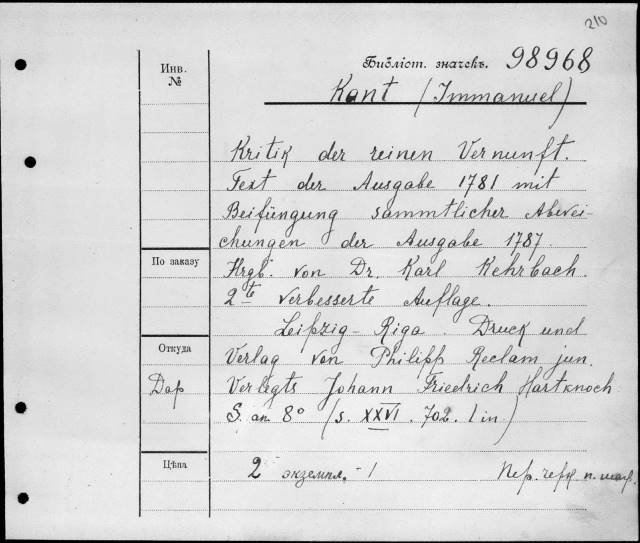 210
Инв.
№
Библіот. значекъ. 98968
Kant (Immanuel)
Kritik der reinen Vernunft.
Text der Ausgabe 1781 mit
Beifüngung sammtlicher Abwei-
chungen der Ausgabe 1787.
По заказу
Hrgb. von Dr. Karl Kehrbach.
2te verbesserte Auflage.
Leipzig-Riga. Druck und
Откуда
Verlag von Philipp Reclam jun.
Дар
Verlegts Johann Friedrich Hartknoch
S. an. 8° (s. XXVI. 702. 1 in.)
Цѣна
2 экземпл. - 1
Пер. п.